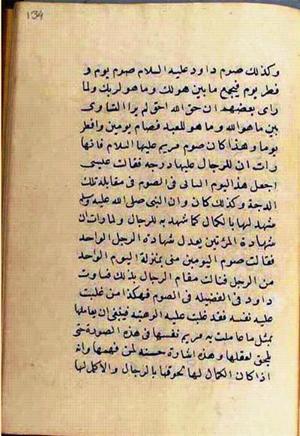 134
وكذلك صوم داود عليه السلام صوم يوم و
فطر يوم فيجمع ما بين ما هو لك وما هو لربك ولما
راى بعضهم ان حق الله احق لم ير التساوى
بين ما هو لله وما هو للعبد فصام يومين وافطر
يوما وهذا كان صوم مريم عليها السلام فانها
رات ان للرجال عليها درجة فقالت عسى
اجعل هذا اليوم الثانى فى الصوم فى مقابلة تلك
الدرجة وكذلك كان وان النبى صلى الله عليه
شهد لها بالكمال كما شهد به للرجال ولما رات ان
شهادة المرتين بعدل شهادة الرجل الواحد
فقالت صوم اليومين منى بمنزلة اليوم الواحد
من الرجل فنالت مقام الرجال بذلك فساوت
داود فى الفضيلة فى الصوم فهكذا من غلبت
عليه نفسه فقد غلبت عليه الوهيته فينبغى ان يعاملها
بمثل ما عاملت به مريم نفسها فى هذه الصورة حتى
يلحق لعقلها وهذه اشارة حسنة لمن فهمها وانه
اذا كان الكمال لها لحوقها بالرجال والاكمل لها